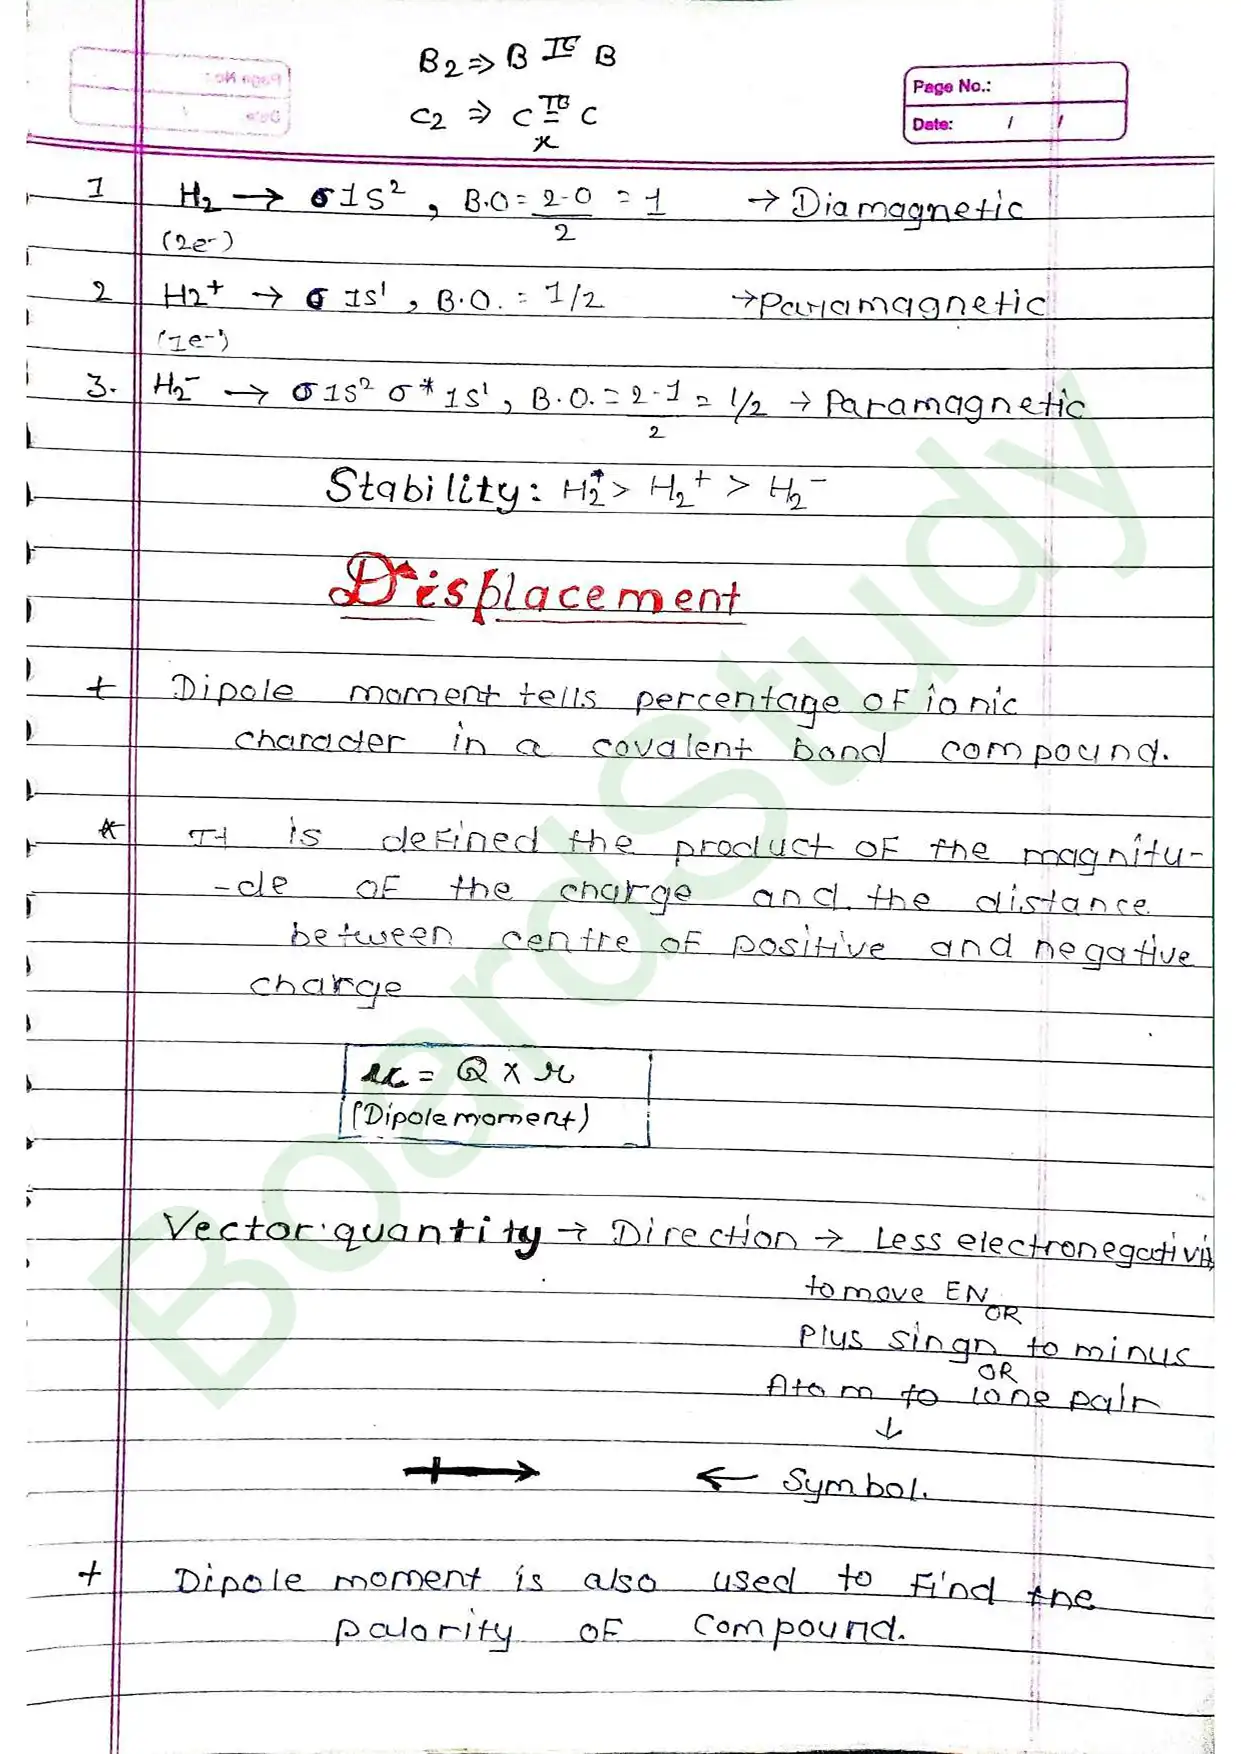 B2 ⇒ B π B
C2 ⇒ C π C
π
Page No.:
Date: / /
1 H2 → σ1S², B.O = 2-0/2 = 1 → Diamagnetic
(2e-)
2 H2+ → σ 1S¹, B.O. = 1/2 → Paramagnetic
(1e-)
3. H2- → σ1S² σ*1S¹, B.O. = 2-1/2 = 1/2 → Paramagnetic
Stability: H2 > H2+ > H2-
Displacement
+ Dipole moment tells percentage of ionic
character in a covalent bond compound.
* It is defined the product of the magnitu-
-de of the charge and the distance
between centre of positive and negative
charge
μ = Q × r
(Dipole moment)
Vector quantity → Direction → Less electronegativi
to move EN
OR
Plus singn to minus
OR
Atom to lone pair
↓
← Symbol.
+ Dipole moment is also used to find the
palarity of compound.
BoardStudy